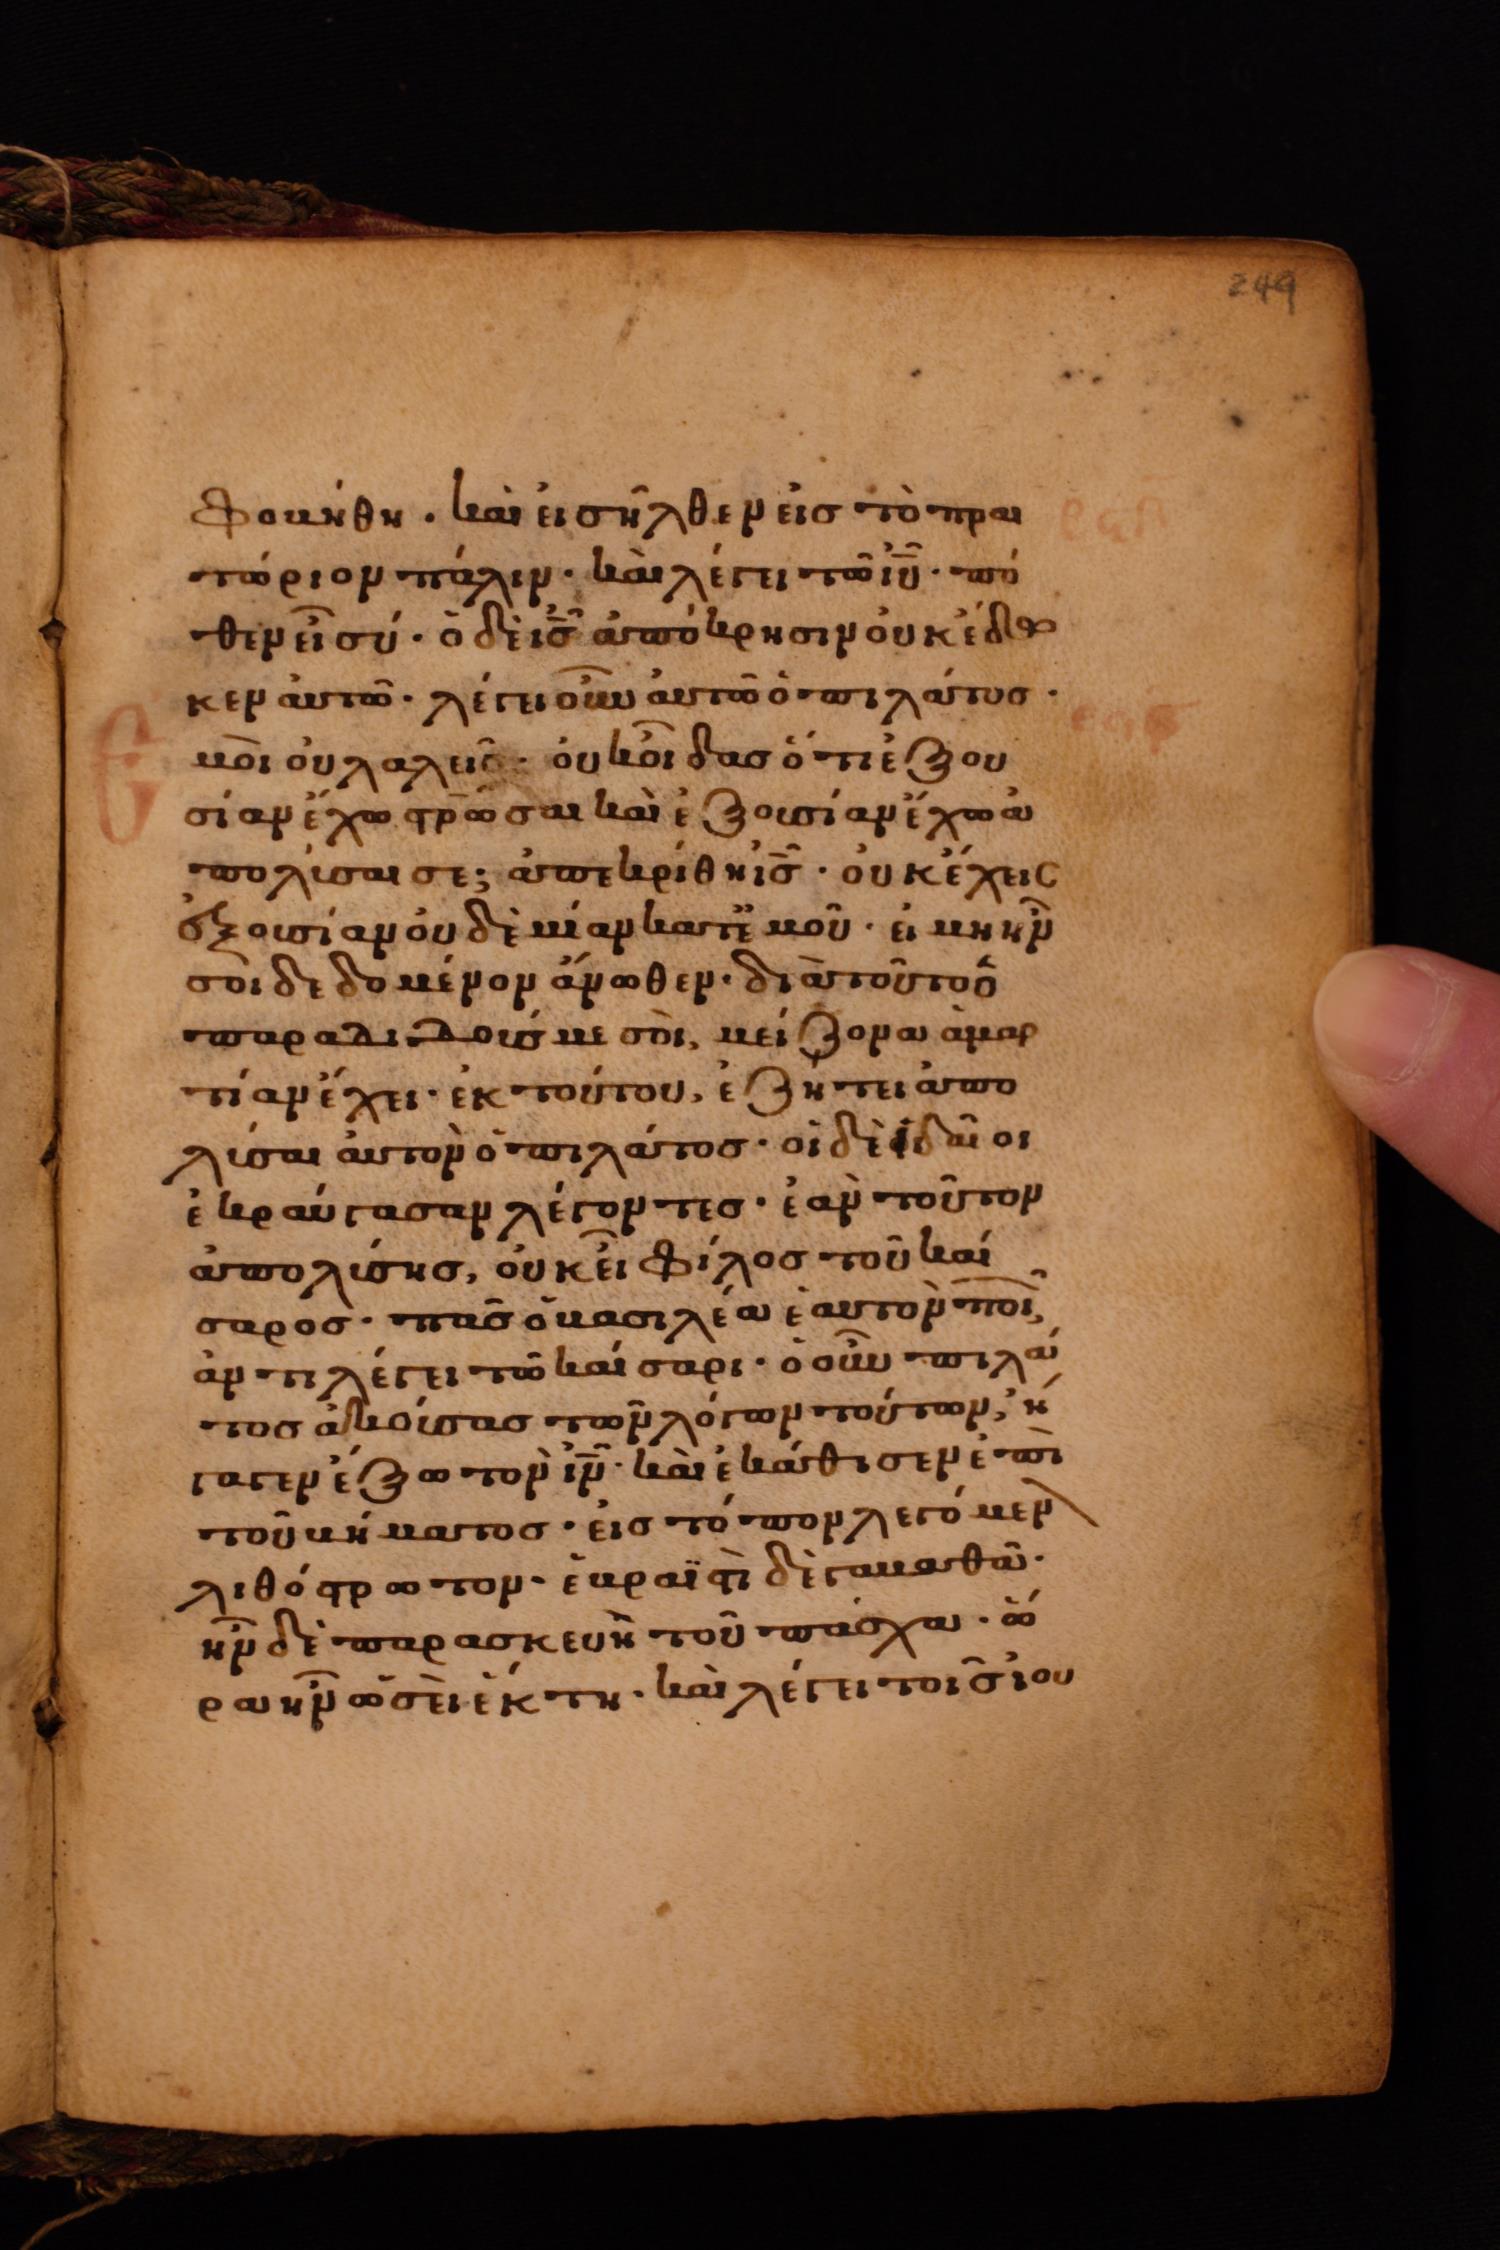 249
φοβήθη · καὶ εἰσῆλθεν εἰς τὸ πραι
τώριον πάλιν · καὶ λέγει τῶ ἰῦ · πό
θεν εἶ σύ · ὁ δὲ ις ἀπόκρησιν οὐκ ἔδω
κεν αὐτῶ · λέγει οὖν αὐτῶ ὁ πιλάτος ·
Ε
μοὶ οὐ λαλεῖς · οὐκ οἶδας ὅτι ἐξου
σίαν ἔχω σρῶσαι καὶ ἐξουσίαν ἔχω ἀ
πολύσαι σε; ἀπεκρίθη ἰς · οὐκ ἔχεις
ἐξουσίαν οὐδὲ μίαν κατ ἐμοῦ · εἰ μη ἦν
σοὶ δεδομένον ἄνωθεν · διὰ τοῦτο ὁ
παραδιδούς με σοὶ, μείζονα ἁμαρ
τίαν ἔχει · ἐκ τούτου, ἐζήτει ἀπο
λύσαι αὐτὸν ὁ πιλάτος · οἱ δὲ ἰδαῖοι
ἐκραύγασαν λέγοντες · ἐὰν τοῦτον
ἀπολύσης, οὐκ εἶ φίλος τοῦ καί
σαρος · πᾶς ὁ βασιλέα ἑαυτὸν ποι,
ἀντιλέγει τῶ καίσαρι · ὁ οὖν πιλά
τος ἀκούσας τῶν λόγων τούτων, ἤ
γαγεν ἔξω τὸν ἰν · καὶ ἐκάθισεν ἐπὶ
τοῦ βήματος · εἰς τόπον λεγόμεν
λιθόσρωτον · ἑβραϊστὶ δὲ γαβαθᾶ ·
ἦν δὲ παρασκευὴ τοῦ πάσχα · ὥ
ρα ἦν ὡσεὶ ἕκτη · καὶ λέγει τοῖς ἰου